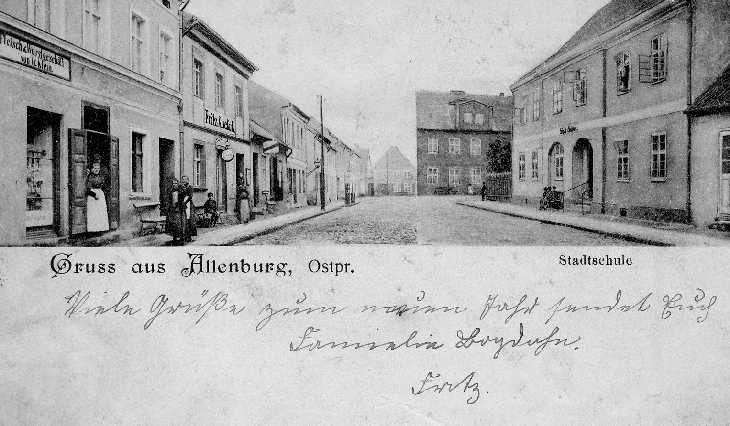 Fleisch & Wurstgeschäft
von C. Klein.
Gruss aus Allenburg, Ostpr.
Stadtschule
Viele Grüße zum neuen Jahr sendet Euch
Familie Bogdahn.
Fritz.